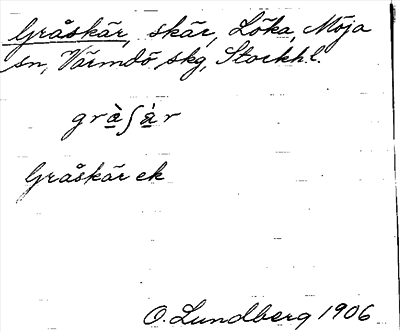 Gråskär, skär, Löka, Möja
sn, Värmdö skg, Stockh.l.
grà̱ʃá̱r
Gråskär ek
O. Lundberg 1906